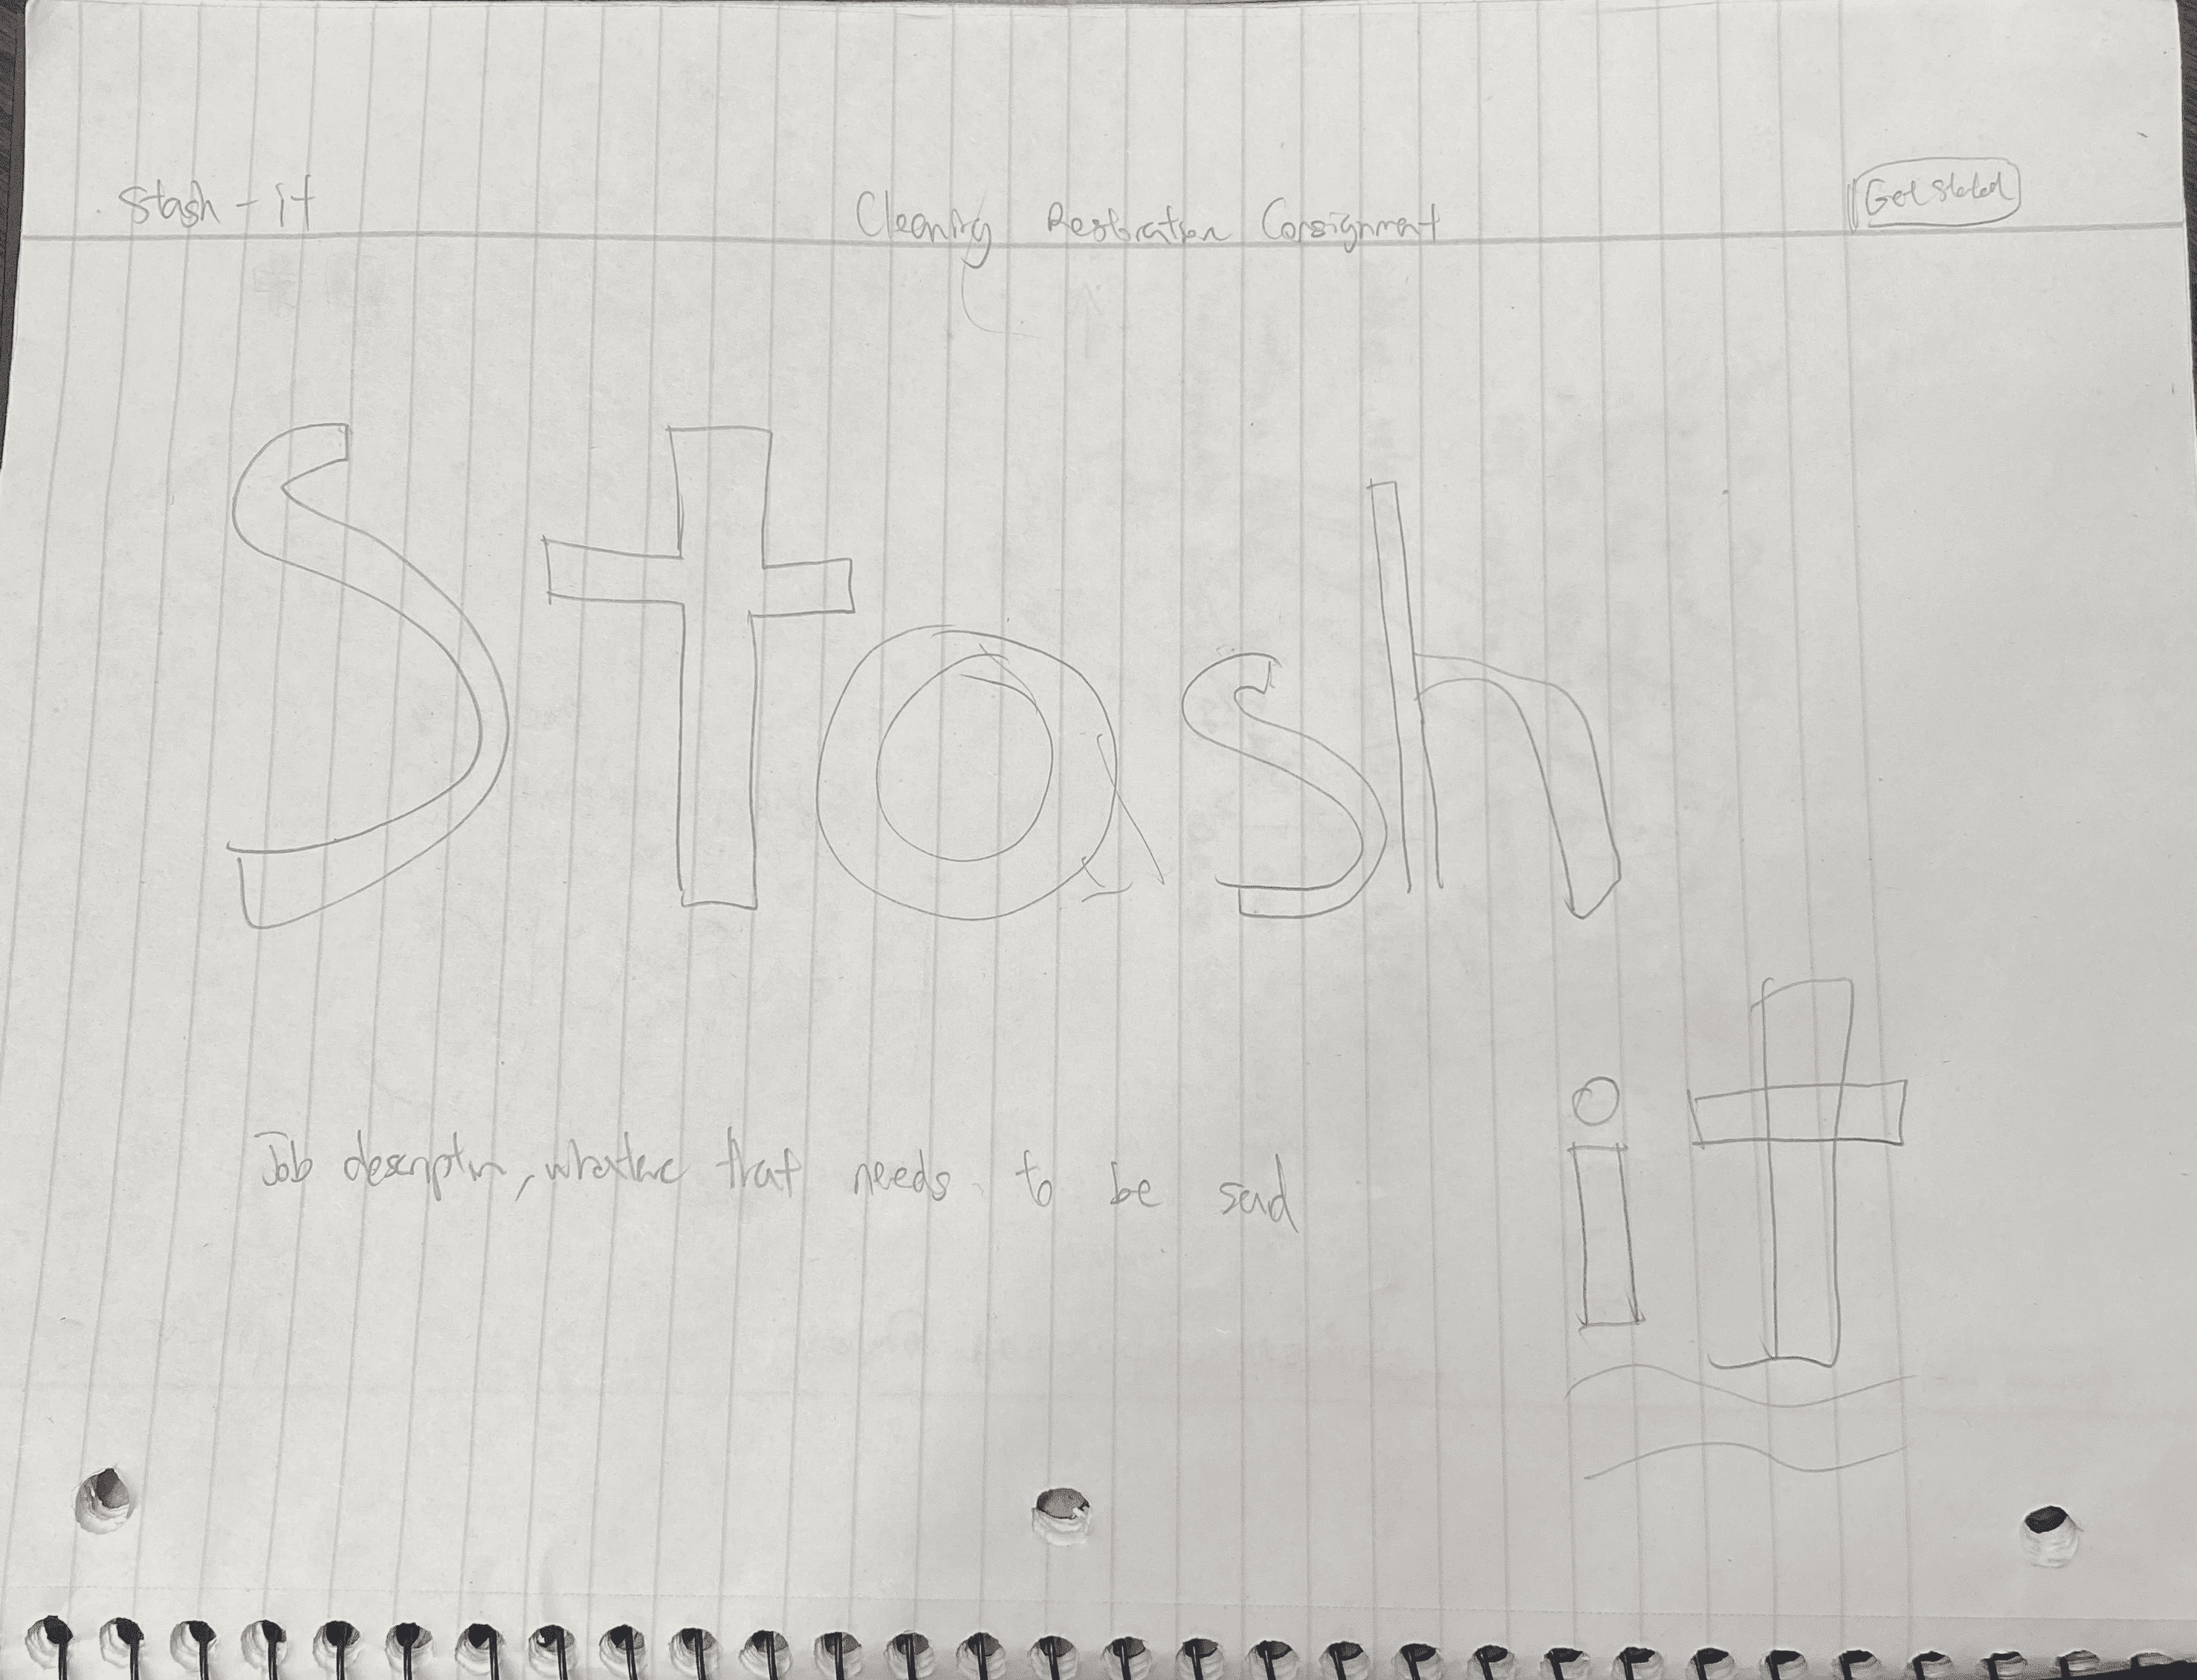 Stash - it
Cleaning Restoration Consignment
Get started
Stash
it
Job description, whatever that needs to be said